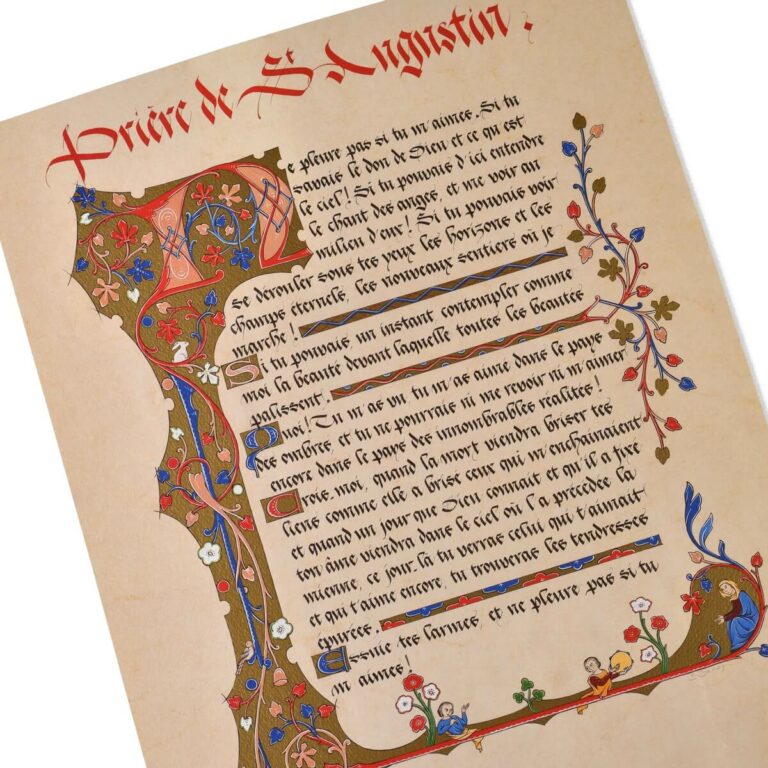 Prière de St Augustin.
Ne pleure pas si tu m'aimes. Si tu
savais le don de Dieu et ce qu'est
le ciel! Si tu pouvais d'ici entendre
le chant des anges, et me voir au
milieu d'eux! Si tu pouvais voir
se dérouler sous tes yeux les horizons et les
champs eternels, les nouveaux sentiers où je
marche!
Si tu pouvais un instant contempler comme
moi la beauté devant laquelle toutes les beautés
palissent.
Quoi! Tu m'as vu, tu m'as aimé dans le pays
des ombres et tu ne pourrais ni me revoir ni m'aimer
encore dans le pays des innombrables réalités!
Crois-moi, quand la mort viendra briser tes
liens comme elle a brisé ceux qui m'enchainaient
et quand un jour que Dieu connait et qu'il a fixé
ton âme viendra dans le ciel où l'a précédée la
mienne, ce jour-là tu verras celui qui t'aimait
et qui t'aime encore, tu trouveras les tendresses
épurées.
Essuie tes larmes, et ne pleure pas si tu
m'aimes!